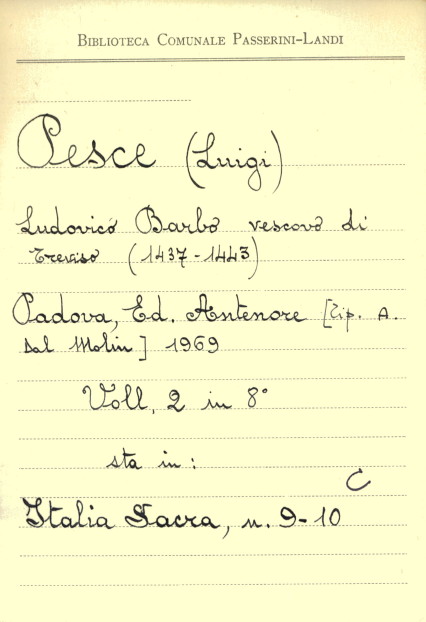 BIBLIOTECA COMUNALE PASSERINI-LANDI
Pesce (Luigi)
Ludovico Barbo vescovo di
Treviso (1437-1443)
Padova, Ed. Antenore [Tip. A.
Dal Molin] 1969
Voll. 2 in 8°
sta in:
C
Italia Sacra, n. 9-10